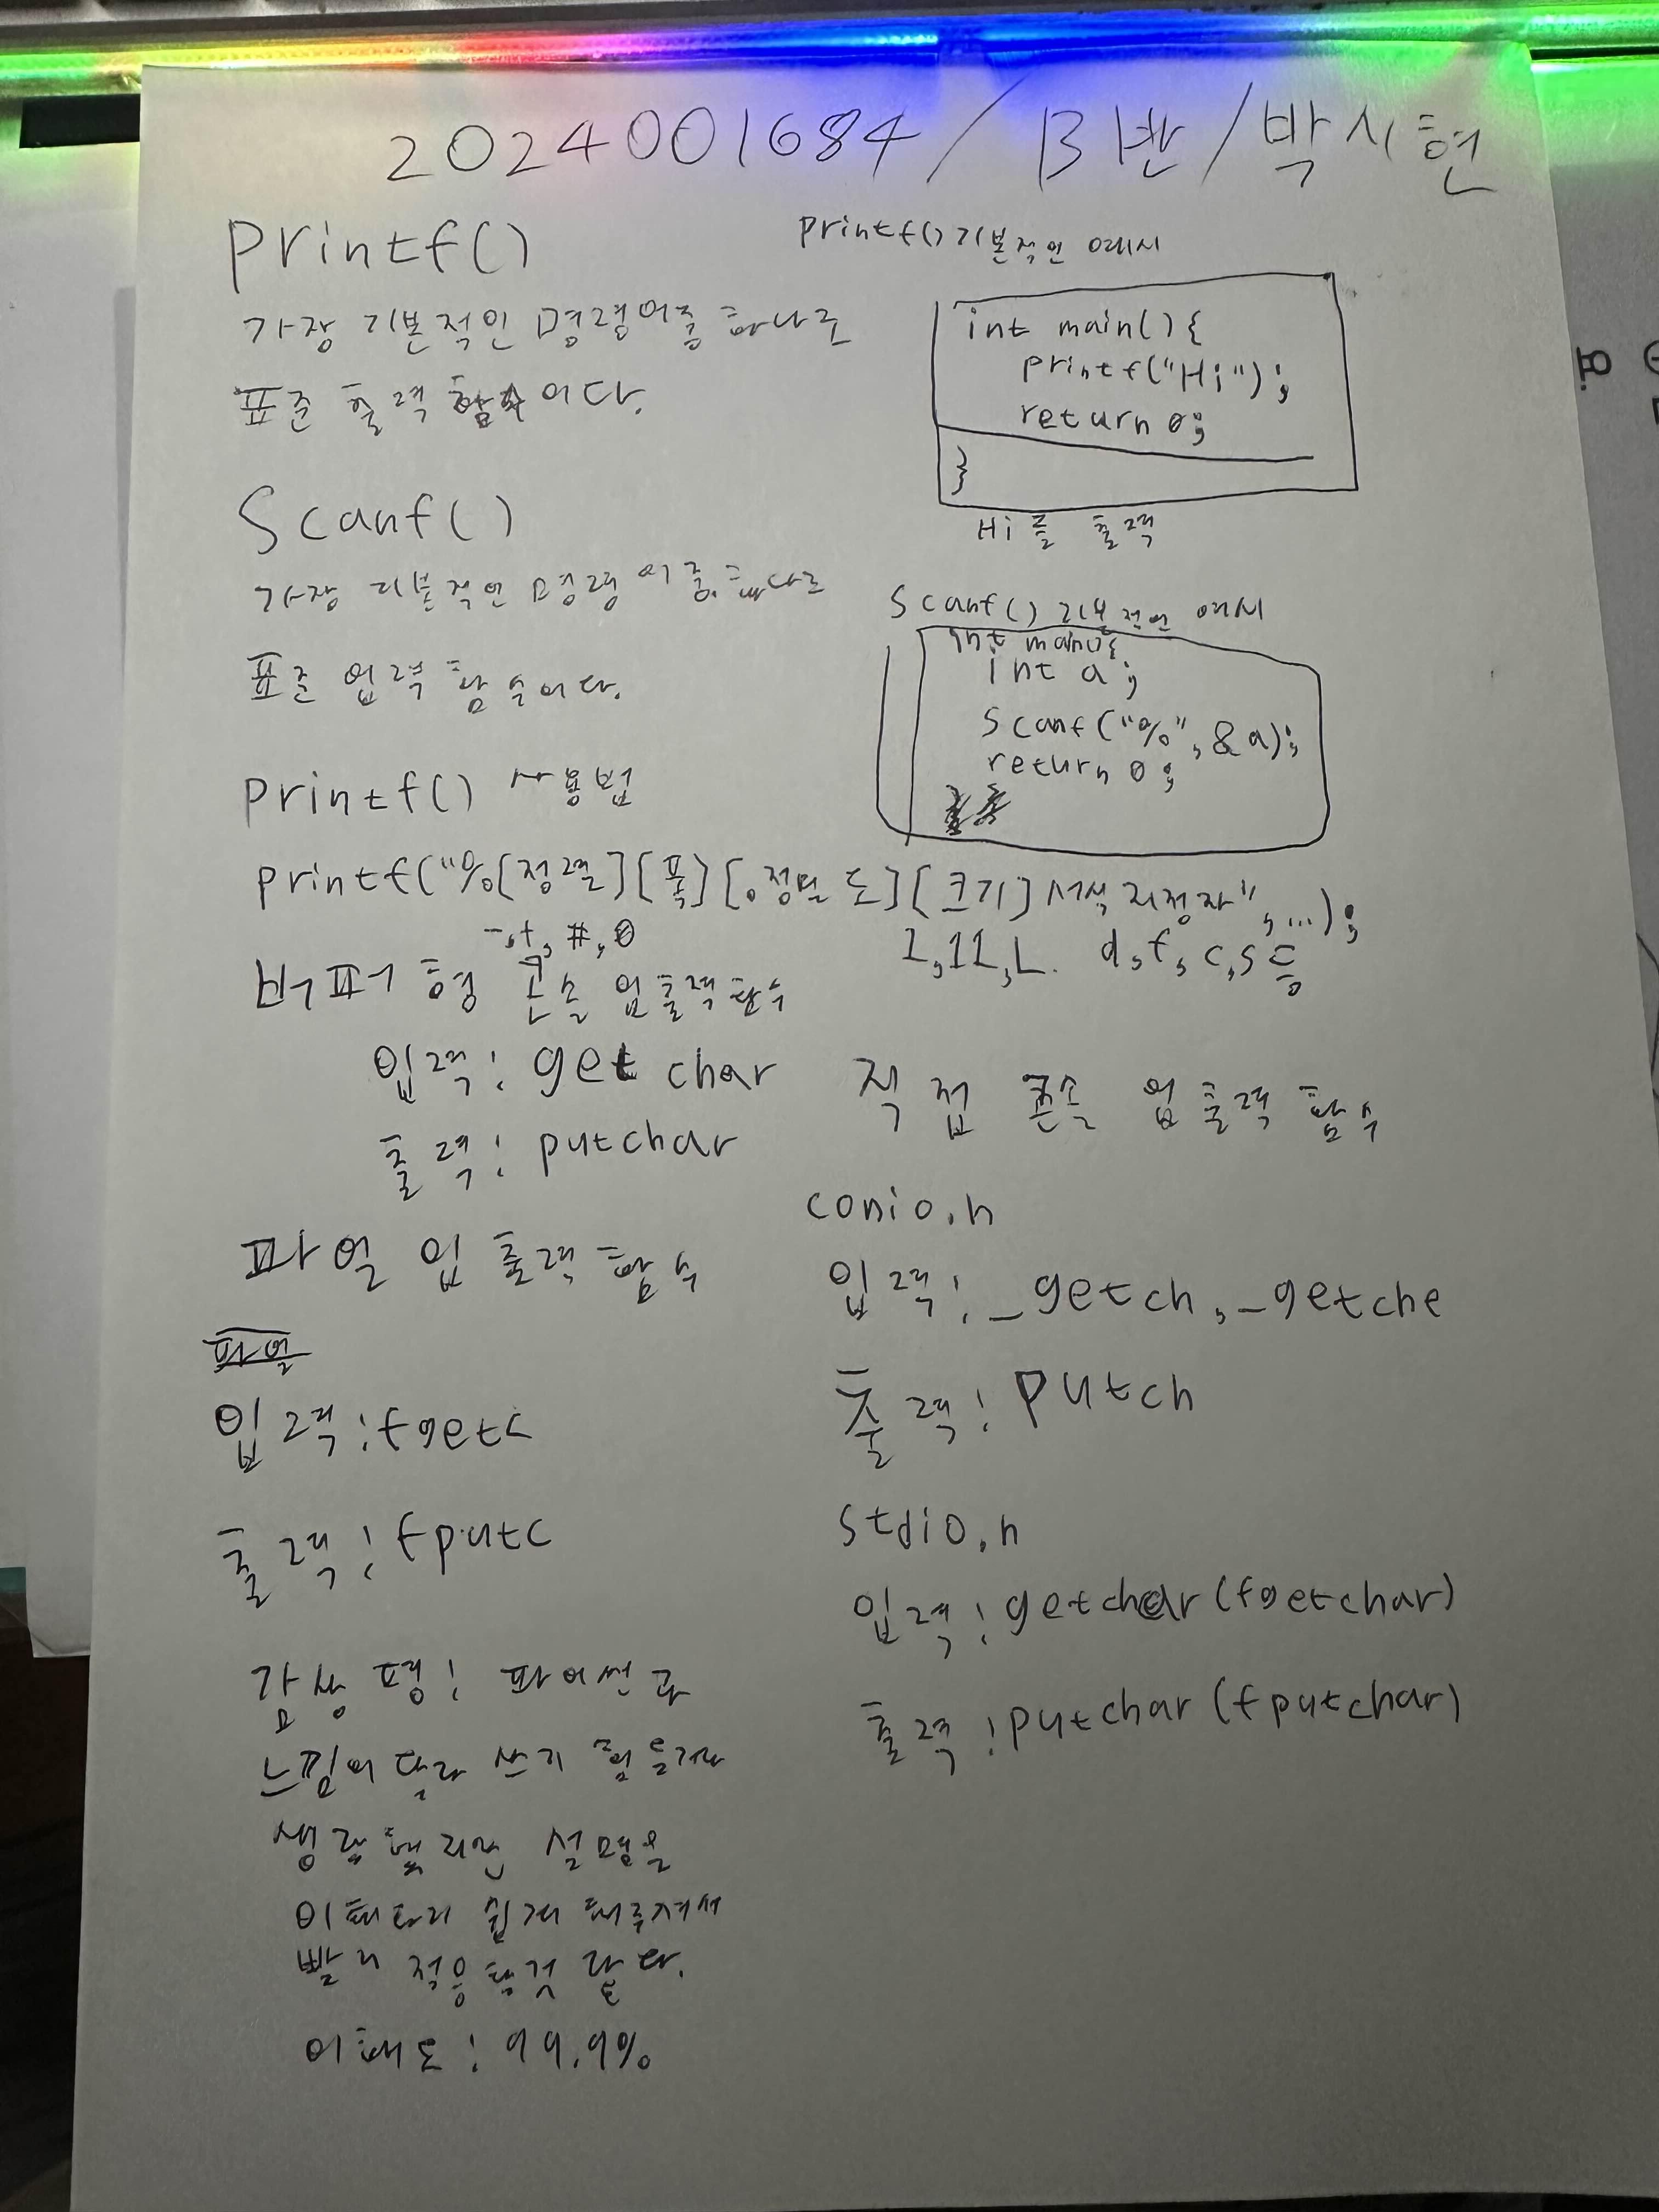 2024001684 / B반 / 박시현
printf()
가장 기본적인 명령어중 하나로
표준 출력 함수이다.
printf() 기본적인 예시
int main(){
printf("Hi");
return 0;
}
Hi를 출력
Scanf()
가장 기본적인 명령어중 하나로
표준 입력 함수이다.
Scanf() 기본적인 예시
int main(){
int a;
Scanf("%", &a);
return 0;
printf() 사용법
printf("%[정렬][폭][.정밀도][크기]서식지정자", ...);
-,+,#,0
l,ll,L. d,f,c,s 등
버퍼형 콘솔 입출력함수
입력: getchar
출력: putchar
파일 입출력 함수
파일
입력: fgetc
출력: fputc
직접 콘솔 입출력 함수
conio.h
입력: _getch, _getche
출력: Putch
stdio.h
입력: getchar(fgetchar)
출력: putchar(fputchar)
감상평: 파이썬과
느낌이 달라 쓰기 힘들거라
생각했지만 설명을
이해하기 쉽게 해주셔서
빨리 적응할것 같다.
이해도: 99.9%